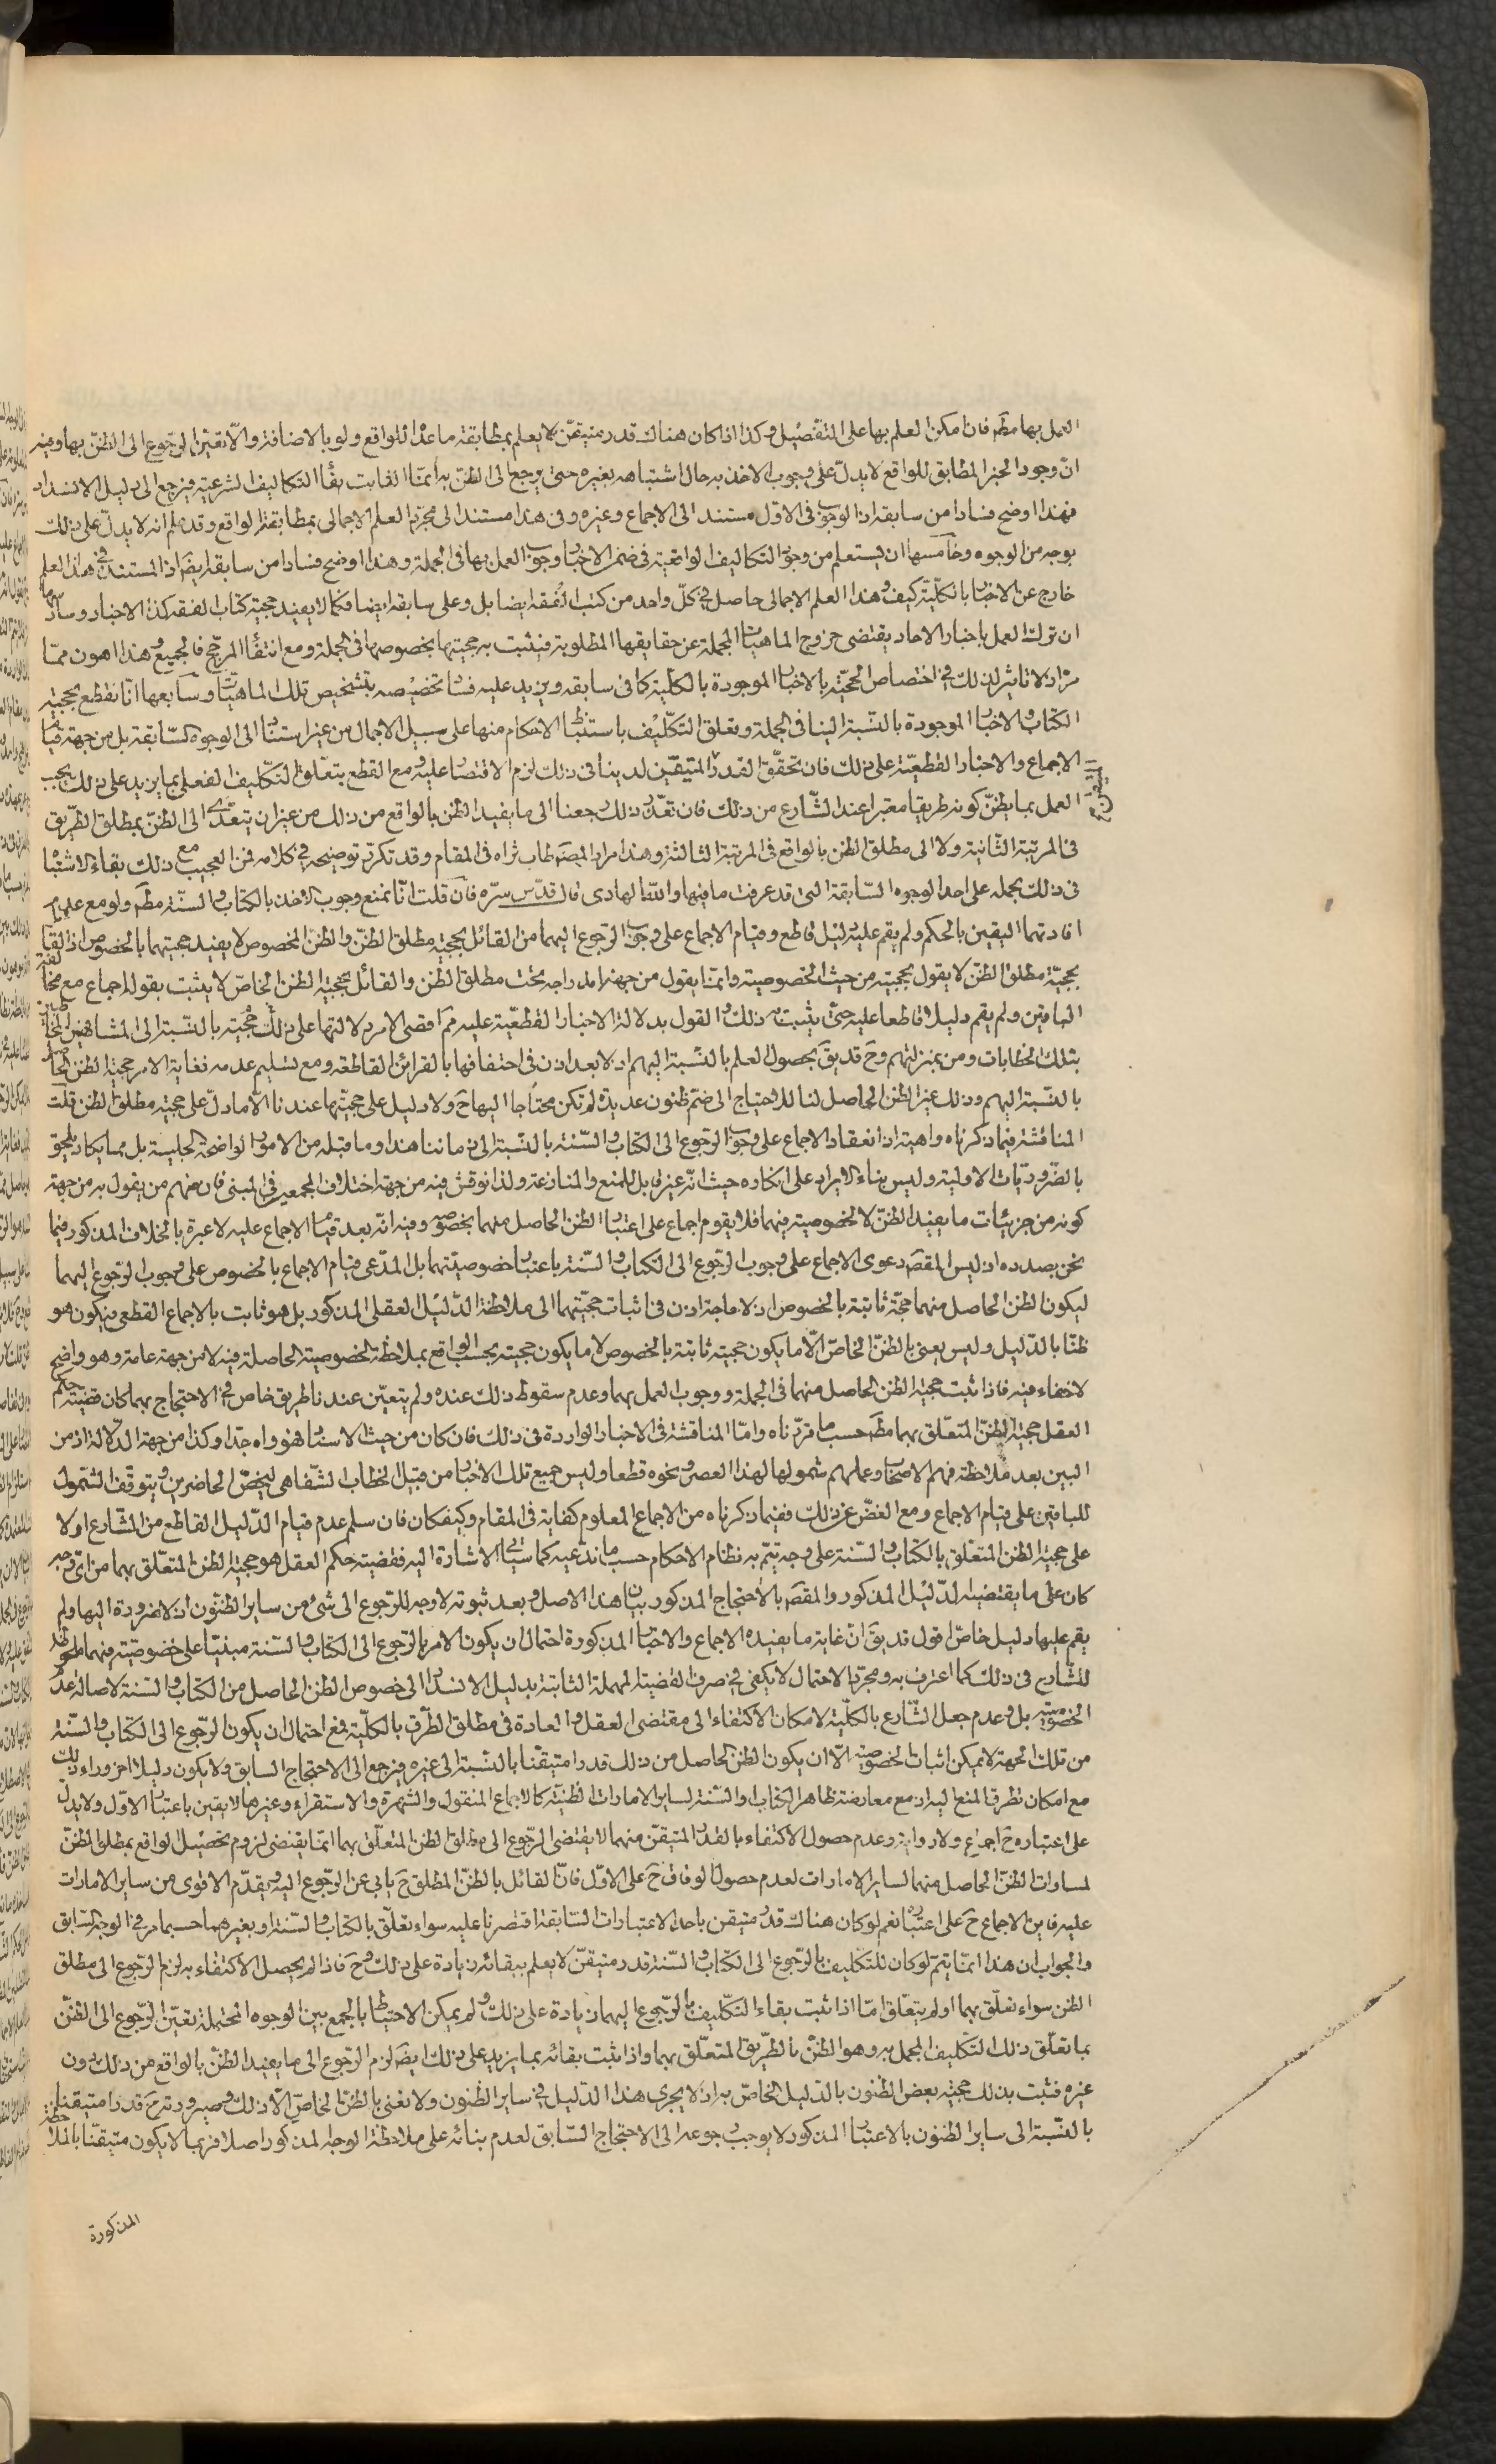 العمل بها مطَ فان امكن العلم بها على التفصيل وكذا اذا كان هناك قدر متيقن لا يعلم بمطابقة ما عداه للواقع ولو بالاضافة والّا تعيّن الرجوع الى الظنّ بها وفيه
انّ وجود الخبر المطابق للواقع لا يدلّ على وجوب الاخذ به حال اشتباهه بغيره حتى يرجع الى الظنّ به انّما الثابت بقاء التكاليف الشرعيّة فيرجع الى دليل الانسداد
فهذا اوضح فسادا من سابقه اذ الوجوب فى الاوّل مستند الى الاجماع وغيره وفى هذا مستند الى مجرّد العلم الاجمالى بمطابقة الواقع وقد علم انه لا يدلّ على ذلك
بوجه من الوجوه وخامسها ان يستعلم من وجود التكاليف الواقعية فى ضمن الاخبار وجوب العمل بها فى الجملة وهذا اوضح فسادا من سابقه ايضَ اذ المستند فى هذا العلم
خارج عن الاخبار بالكلّية كيف وهذا العلم الاجمالى حاصل فى كلّ واحد من كتب الفقه ايضا بل وعلى سابقه ايضا فكما لا يفيد حجية كتاب الفقه كذا الاخبار وسادسها
ان ترك العمل باخبار الاحاد يقتضى خروج الماهيات المجملة عن حقايقها المطلوبة فيثبت به حجيتها بخصوصها فى الجملة ومع انتفاء المرجح فالجميع وهذا اهون ممّا
مرّ اذ لا تاثير لذلك فى اختصاص الحجّية بالاخبار الموجودة بالكلّية كما فى سابقه ويزيد عليه فساد تخصيصه بتشخيص تلك الماهيّات وسابعها انّا نقطع بحجية
الكتاب والاخبار الموجودة بالنسبة الينا فى الجملة وتعلق التكليف باستنباط الاحكام منها على سبيل الاجمال من غير استناد الى الوجوه السابقة بل من جهة قيام
الاجماع والاخبار القطعيّة على ذلك فان تحقّق القدر المتيقّن لدينا فى ذلك لزم الاقتصار عليه ومع القطع بتعلّق التكليف الفعلى بما يزيد على ذلك يجب
العمل بما يظنّ كونه طريقا معتبرا عند الشّارع من ذلك فان تعذّر ذلك رجعنا الى ما يفيد الظن بالواقع من ذلك من غير ان يتعدّى الى الظنّ بمطلق الطّريق
فى المرتبة الثّانية ولا الى مطلق الظن بالواقع فى المرتبة الثالثة وهذا مراد المصَ طاب ثراه فى المقام وقد تكرّر توضيحه فى كلامه فمن العجيب مع ذلك بقاء الاشتباه
فى ذلك بحمله على احد الوجوه السّابقة التى قد عرفت ما فيها والله الهادى قال قدّس سرّه فان قلت انّا نمنع وجوب الاخذ بالكتاب والسنّة مطَ ولو مع عدم
افادتهما اليقين بالحكم ولم يقم عليه دليل قاطع وقيام الاجماع على وجوب الرجوع اليهما من القائل بحجية مطلق الظنّ والظنّ المخصوص لا يفيد حجيتهما بالخصوص اذ القائل
بحجيّة مطلق الظنّ لا يقول بحجيته من حيث الخصوصية وانّما يقول من جهة اندراجه تحت مطلق الظن والقائل بحجية الظن الخاصّ لا يثبت بقوله اجماع مع مخالفة
الباقين ولم يقم دليلا قاطعا عليه حتى يثبت به ذلك والقول بدلالة الاخبار القطعيّة عليه ممَ اقصى الامر دلالتها على ذلك حجيته بالنسبة الى المشافهين المخاطبين
بتلك الخطابات ومن بمنزلتهم وحَ قد يقَ بحصول العلم بالنّسبة اليهم اذ لا بعد اذن فى احتفافها بالقرائن القاطعة ومع تسليم عدمه فغاية الامر حجية الظن الحاصل
بالنّسبة اليهم وذلك غير الظن الحاصل لنا للاحتياج الى ضمّ ظنون عديدة لم تكن محتاجا اليها حَ ولا دليل على حجيّتها عندنا الّا ما دلّ على حجيّة مطلق الظن قلت
المناقشة فيما ذكرناه واهية اذ انعقاد الاجماع على وجوب الرّجوع الى الكتاب والسّنة بالنّسبة الى زماننا هذا وما قبله من الامور الواضحة الجليّة بل مما يكاد يلحق
بالضّروريّات الاوليّة وليس بناء الايراد على انكاره حيث انّه غير قابل للمنع والمنازعة ولذا نوقش فيه من جهة اختلاف المجمعين فى المبنى فان منهم من يقول به من جهة
كونه من جزئيّات ما يفيد الظنّ لا لخصوصية فيهما فلا يقوم اجماع على اعتبار الظن الحاصل منهما بخصوصه وفيه انّه بعد قيام الاجماع عليه لا عبرة بالخلاف المذكور فيما
نحن بصدده اذ ليس المقصَ دعوى الاجماع على وجوب الرّجوع الى الكتاب والسّنة باعتبار خصوصيّتهما بل المدّعى قيام الاجماع بالخصوص على وجوب الرّجوع اليهما
ليكون الظن الحاصل منهما حجّة ثابتة بالخصوص اذ لا حاجة اذن فى اثبات حجيّتهما الى ملاحظة الدّليل العقلى المذكور بل هو ثابت بالاجماع القطعى فيكون هو
ظنّا بالدّليل وليس يعنى بالظنّ الخاصّ الّا ما يكون حجيته ثابتة بالخصوص لا ما يكون حجيته بحسب الواقع بملاحظة الخصوصيّة الحاصلة فيه لا من جهة عامة وهو واضح
لا خفاء فيه فاذا ثبت حجية الظن الحاصل منهما فى الجملة ووجوب العمل بهما وعدم سقوط ذلك عنده ولم يتعيّن عندنا طريق خاص فى الاحتجاج بهما كان قضيّة حكم
العقل حجية الظنّ المتعلّق بهما مطَ حسب ما قرّرناه وامّا المناقشة فى الاخبار الواردة فى ذلك فان كان من حيث الاسناد فهو واه جدّا وكذا من جهة الدلالة اذ من
البين بعد ملاحظة فهم الاصحاب وعملهم شمولها لهذا العصر ونحوه قطعا وليس جميع تلك الاخبار من قبيل الخطاب الشّفاهى ليخصّ الحاضرين ويتوقّف الشّمول
للباقين على قيام الاجماع ومع الغضّ عن ذلك ففيما ذكرناه من الاجماع المعلوم كفاية فى المقام وكيف كان فان سلم عدم قيام الدّليل القاطع من الشارع اولا
على حجيّة الظن المتعلّق بالكتاب والسّنة على وجه يتمّ به نظام الاحكام حسب ما ندّعيه كما سيأتى الاشارة اليه فقضيّة حكم العقل هو حجية الظن المتعلّق بهما من اىّ وجه
كان على ما يقتضيه الدّليل المذكور والمقصَ بالاحتجاج المذكور بيان هذا الاصل وبعد ثبوته لا وجه للرّجوع الى شئ من ساير الظنون اذ لا ضرورة اليها ولم
يقم عليها دليل خاصّ اقول قد يقَ انّ غاية ما يفيده الاجماع والاخبار المذكورة احتمال ان يكون الامر بالرّجوع الى الكتاب والسّنة مبنيّا على خصوصيّة فيهما ملحوظة
للشّارع فى ذلك كما اعترف به ومجرّد الاحتمال لا يكفى فى صرف القضيّة المهملة الثابتة بدليل الانسداد الى خصوص الظن الحاصل من الكتاب والسّنة لاصالة عدم
الخصوصيّة بل وعدم جعل الشّارع بالكلّية لامكان الاكتفاء الى مقتضى العقل والعادة فى مطلق الطّرق بالكلّية فمع احتمال ان يكون الرّجوع الى الكتاب والسّنة
من تلك الجهة لا يمكن اثبات الخصوصية الّا ان يكون الظن الحاصل من ذلك قدرا متيقّنا بالنّسبة الى غيره فيرجع الى الاحتجاج السابق ولا يكون دليلا اخر وراء ذلك
مع امكان تطرق المنع اليه اذ مع معارضة ظاهر الكتاب والسّنة لساير الامارات الظنيّة كالاجماع المنقول والشهرة والاستقراء وغيرها لا يقين باعتبار الاوّل ولا يدلّ
على اعتباره حَ اجماع ولا رواية وعدم حصول الاكتفاء بالقدر المتيقّن منهما لا يقتضى الرّجوع الى مطلق الظن المتعلّق بهما انّما يقتضى لزوم تحصيل الواقع بمطلق الظنّ
لمساوات الظنّ الحاصل منهما لساير الامارات لعدم حصول الوفاق حَ على الاوّل فانّ القائل بالظنّ المطلق حَ يابى عن الرّجوع اليه ويقدّم الاقوى من ساير الامارات
عليه فاين الاجماع حَ على اعتباره نعم لو كان هناك قدر متيقن باحد الاعتبارات السّابقة اقتصرنا عليه سواء تعلّق بالكتاب والسّنة او بغيرهما حسبما مر فى الوجه السّابق
والجواب ان هذا انّما يتمّ لو كان للتكليف بالرّجوع الى الكتاب والسّنة قدر متيقّن لا يعلم ببقائه زيادة على ذلك وحَ فاذا لم يحصل الاكتفاء به لزم الرّجوع الى مطلق
الظن سواء تعلّق بهما او لم يتعلّق امّا اذا ثبت بقاء التكليف بالرّجوع اليهما زيادة على ذلك ولم يمكن الاحتياط بالجمع بين الوجوه المحتملة تعيّن الرّجوع الى الظنّ
بما تعلّق ذلك التكليف المجمل به وهو الظنّ بالطّريق المتعلّق بهما واذا ثبت بقائه بما يزيد على ذلك ايضَ لزم الرّجوع الى ما يفيد الظنّ بالواقع من ذلك دون
غيره فثبت بذلك حجية بعض الظنون بالدّليل الخاصّ به اذ لا يجرى هذا الدّليل فى ساير الظنون ولا نعنى بالظنّ الخاصّ الّا ذلك وصيرورته حَ قدرا متيقنا
بالنّسبة الى ساير الظنون بالاعتبار المذكور لا يوجب رجوعه الى الاحتجاج السّابق لعدم بنائه على ملاحظة الوجه المذكور اصلا فربما لا يكون متيقّنا بالملاحظة
المذكورة